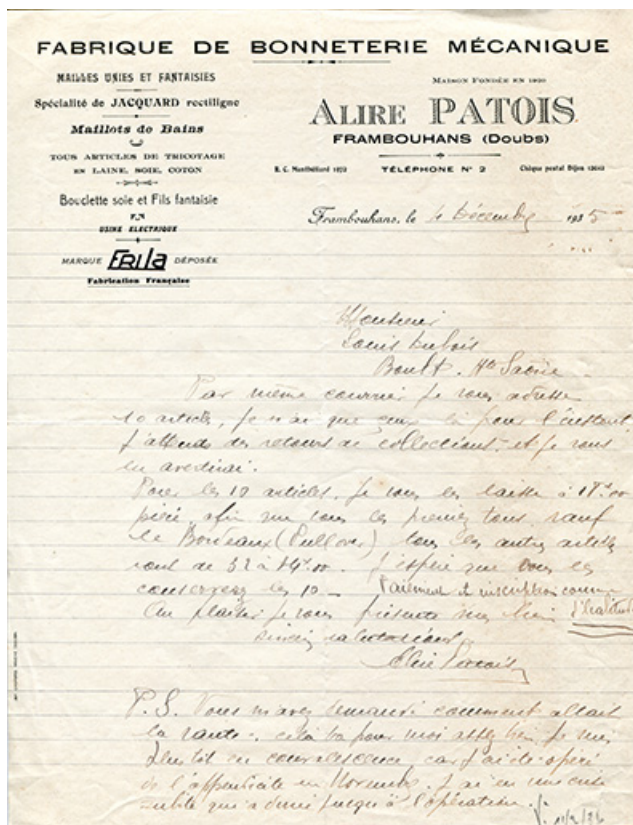 FABRIQUE DE BONNETERIE MÉCANIQUE
MAILLES UNIES ET FANTAISIES
Spécialité de JACQUARD rectiligne
Maillots de Bains
TOUS ARTICLES DE TRICOTAGE
EN LAINE, SOIE, COTON
Bouclette soie et Fils fantaisie
USINE ELECTRIQUE
MARQUE FRILA DÉPOSÉE
Fabrication Française
MAISON FONDÉE EN 1920
ALIRE PATOIS
FRAMBOUHANS (Doubs)
R. C. Montbéliard TÉLÉPHONE N° 2 Chèque postal Dijon
Frambouhans, le 4 Décembre 1935
Monsieur
Louis Dubois
Boult. Hte Saône
Par même courrier je vous adresse
10 articles, je n'ai que ceux là pour l'instant
J'attends des retours de collections, et je vous
en avertirai.
Pour les 10 articles. Je vous les laisse à
pièce, afin que vous les preniez tous, sauf
le Bordeaux (Pullover) tous les autres articles
sont de J'espère que vous les
conserverez les 10 - Paiement et inscription comme
d'habitude
Au plaisir je vous présente mes bien
sincères salutations
Alire Patois
P. S. Vous m'avez demandé comment allait
la santé, cela va pour moi assez bien je suis
bientôt en convalescence, car j'ai été opéré
de l'appendicite en Novembre. J'ai eu une crise
subite qui a duré jusqu'à l'opération.